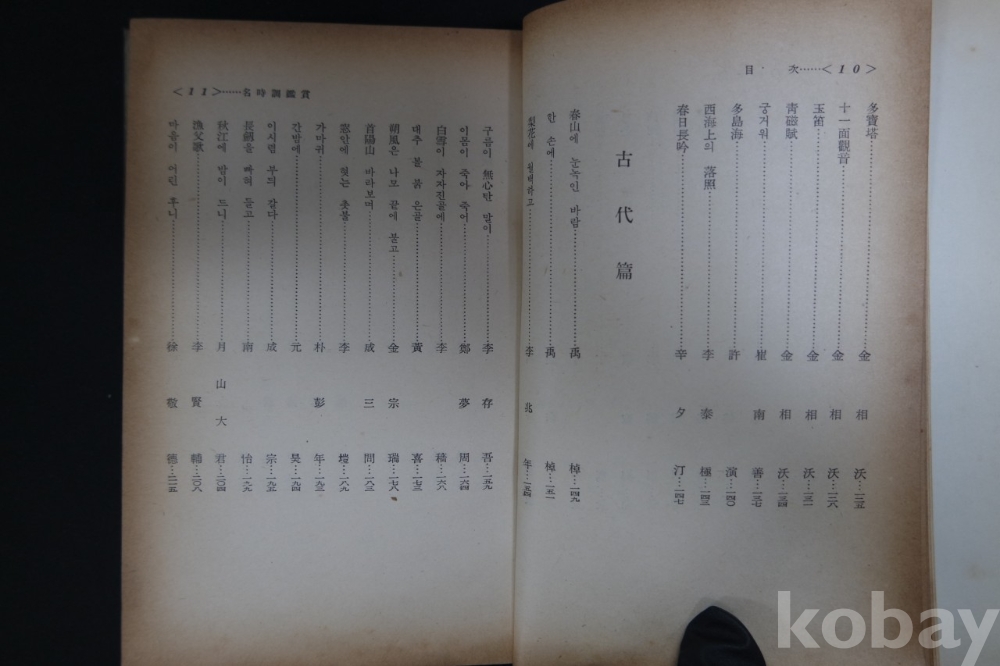 目 次……<10>
多寶塔……金相沃…一二五
十一面觀音……金相沃…一二八
玉笛……金相沃…一三一
靑磁賦……金相沃…一三四
궁거워……崔南善…一三七
多島海……許演…一四〇
西海上의 落照……李泰極…一四三
春日長吟……辛夕汀…一四七
古代篇
春山에 눈녹인 바람……禹倬…一四九
한 손에……禹倬…一五一
梨花에 월백하고……李兆年…一五四
<11>……名時調鑑賞
구름이 無心탄 말이……李存吾…一五九
이몸이 죽어 죽어……鄭夢周…一六四
白雪이 자자진골에……李穡…一六八
대추 볼 붉은골……黃喜…一七三
朔風은 나모 끝에 불고……金宗瑞…一七八
首陽山 바라보며……成三問…一八三
窓안에 혓는 촛불……李塏…一八九
가마귀……朴彭年…一九二
간밤에……元昊…一九四
이시렴 부듸 갈다……成宗…一九五
長劍을 빠혀 들고……南怡…一九九
秋江에 밤이 드니……月山大君…二〇四
漁父歌……李賢輔…二〇八
마음이 어린 후니……徐敬德…二一五
kobay